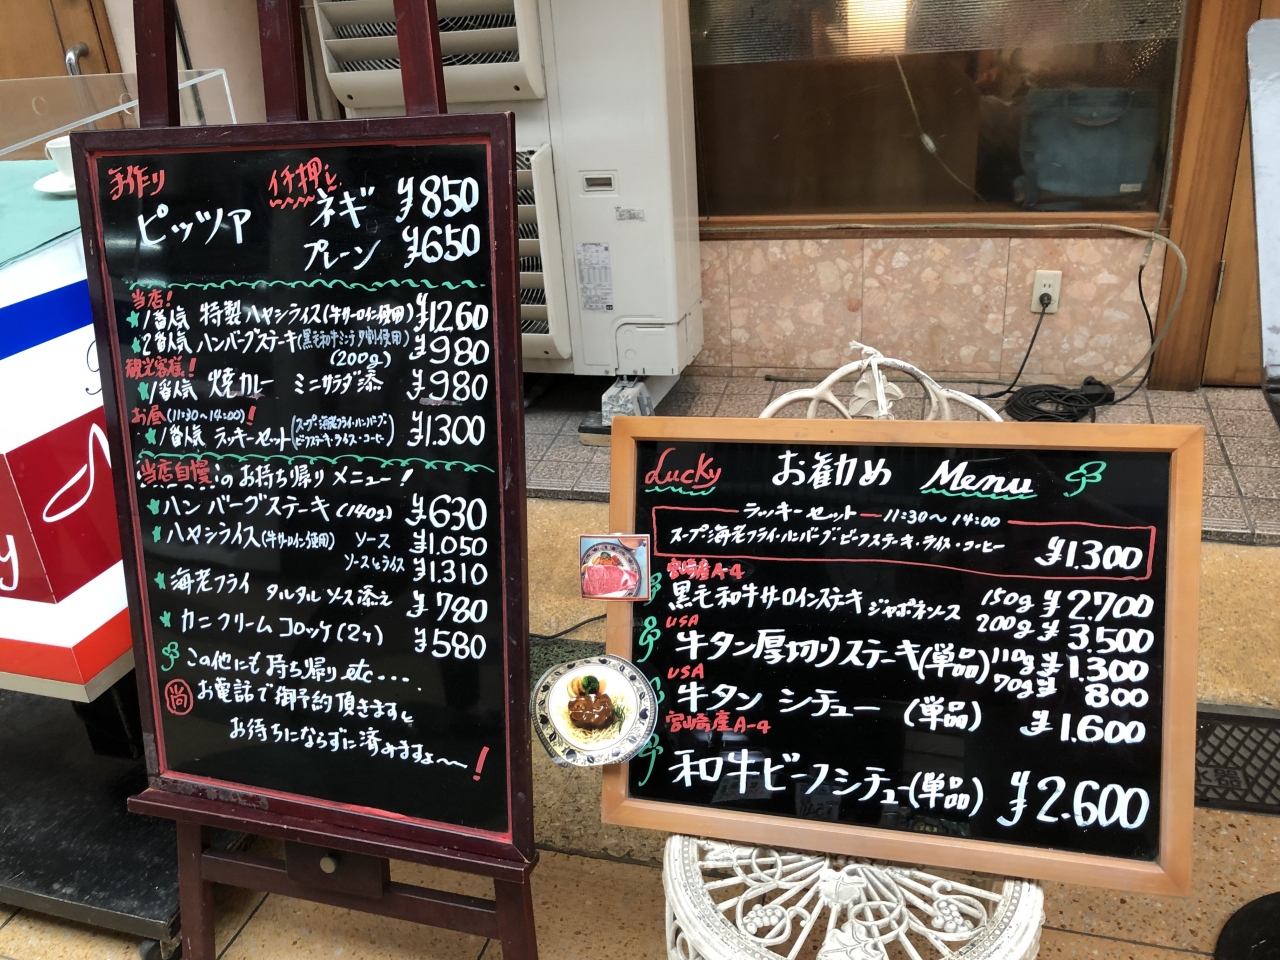 手作り イチ押し
ピッツァ ネギ ¥850
プレーン ¥650
当店!
1番人気 特製ハヤシライス(牛サーロイン使用) ¥1260
2番人気 ハンバーグステーキ(黒毛和牛ミンチ 使用) ¥980
(200g)
観光客様!
1番人気 焼カレー ミニサラダ添 ¥980
お昼(11:30〜14:00)!
1番人気 ラッキーセット(スープ・海老フライ・ハンバーグ・ ¥1.300
ビーフステーキ・ライス・コーヒー)
当店自慢のお持ち帰りメニュー!
ハンバーグステーキ(140g) ¥630
ハヤシライス(牛サーロイン使用) ソース ¥1.050
ソース&ライス ¥1.310
海老フライ タルタルソース添え ¥780
カニクリームコロッケ(2ヶ) ¥580
この他にも持ち帰りetc....
尚 お電話で御予約頂きますと
お待ちにならずに済みますよ〜〜!
Lucky お勧め Menu
ラッキーセット —11:30〜14:00
スープ・海老フライ・ハンバーグ・ビーフステーキ・ライス・コーヒー ¥1.300
宮崎産A-4
黒毛和牛サーロインステーキ ジャポネソース 150g ¥2.700
200g ¥3.500
USA
牛タン厚切りステーキ(単品) 110g ¥1.300
70g ¥800
USA
牛タン シチュー (単品) ¥1.600
宮崎産A-4
和牛ビーフシチュー(単品) ¥2.600